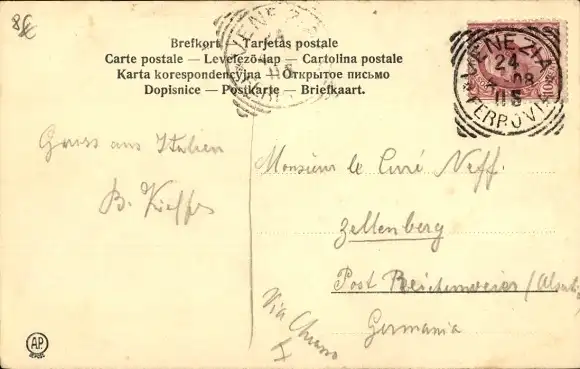 8€
Brefkort — Tarjetas postale
Carte postale — Levelező-lap — Cartolina postale
Karta korespondencyjna — Открытое письмо
Dopisnice — Postkarte — Briefkaart.
VENEZIA
24
08
11 S
FERROVIA
10
Gruss aus Italien
B. Kieffer
Monsieur le Curé Neff.
Zellenberg
Post Reichenweier (Alsace)
Germania
Via Chiasso
A.P.